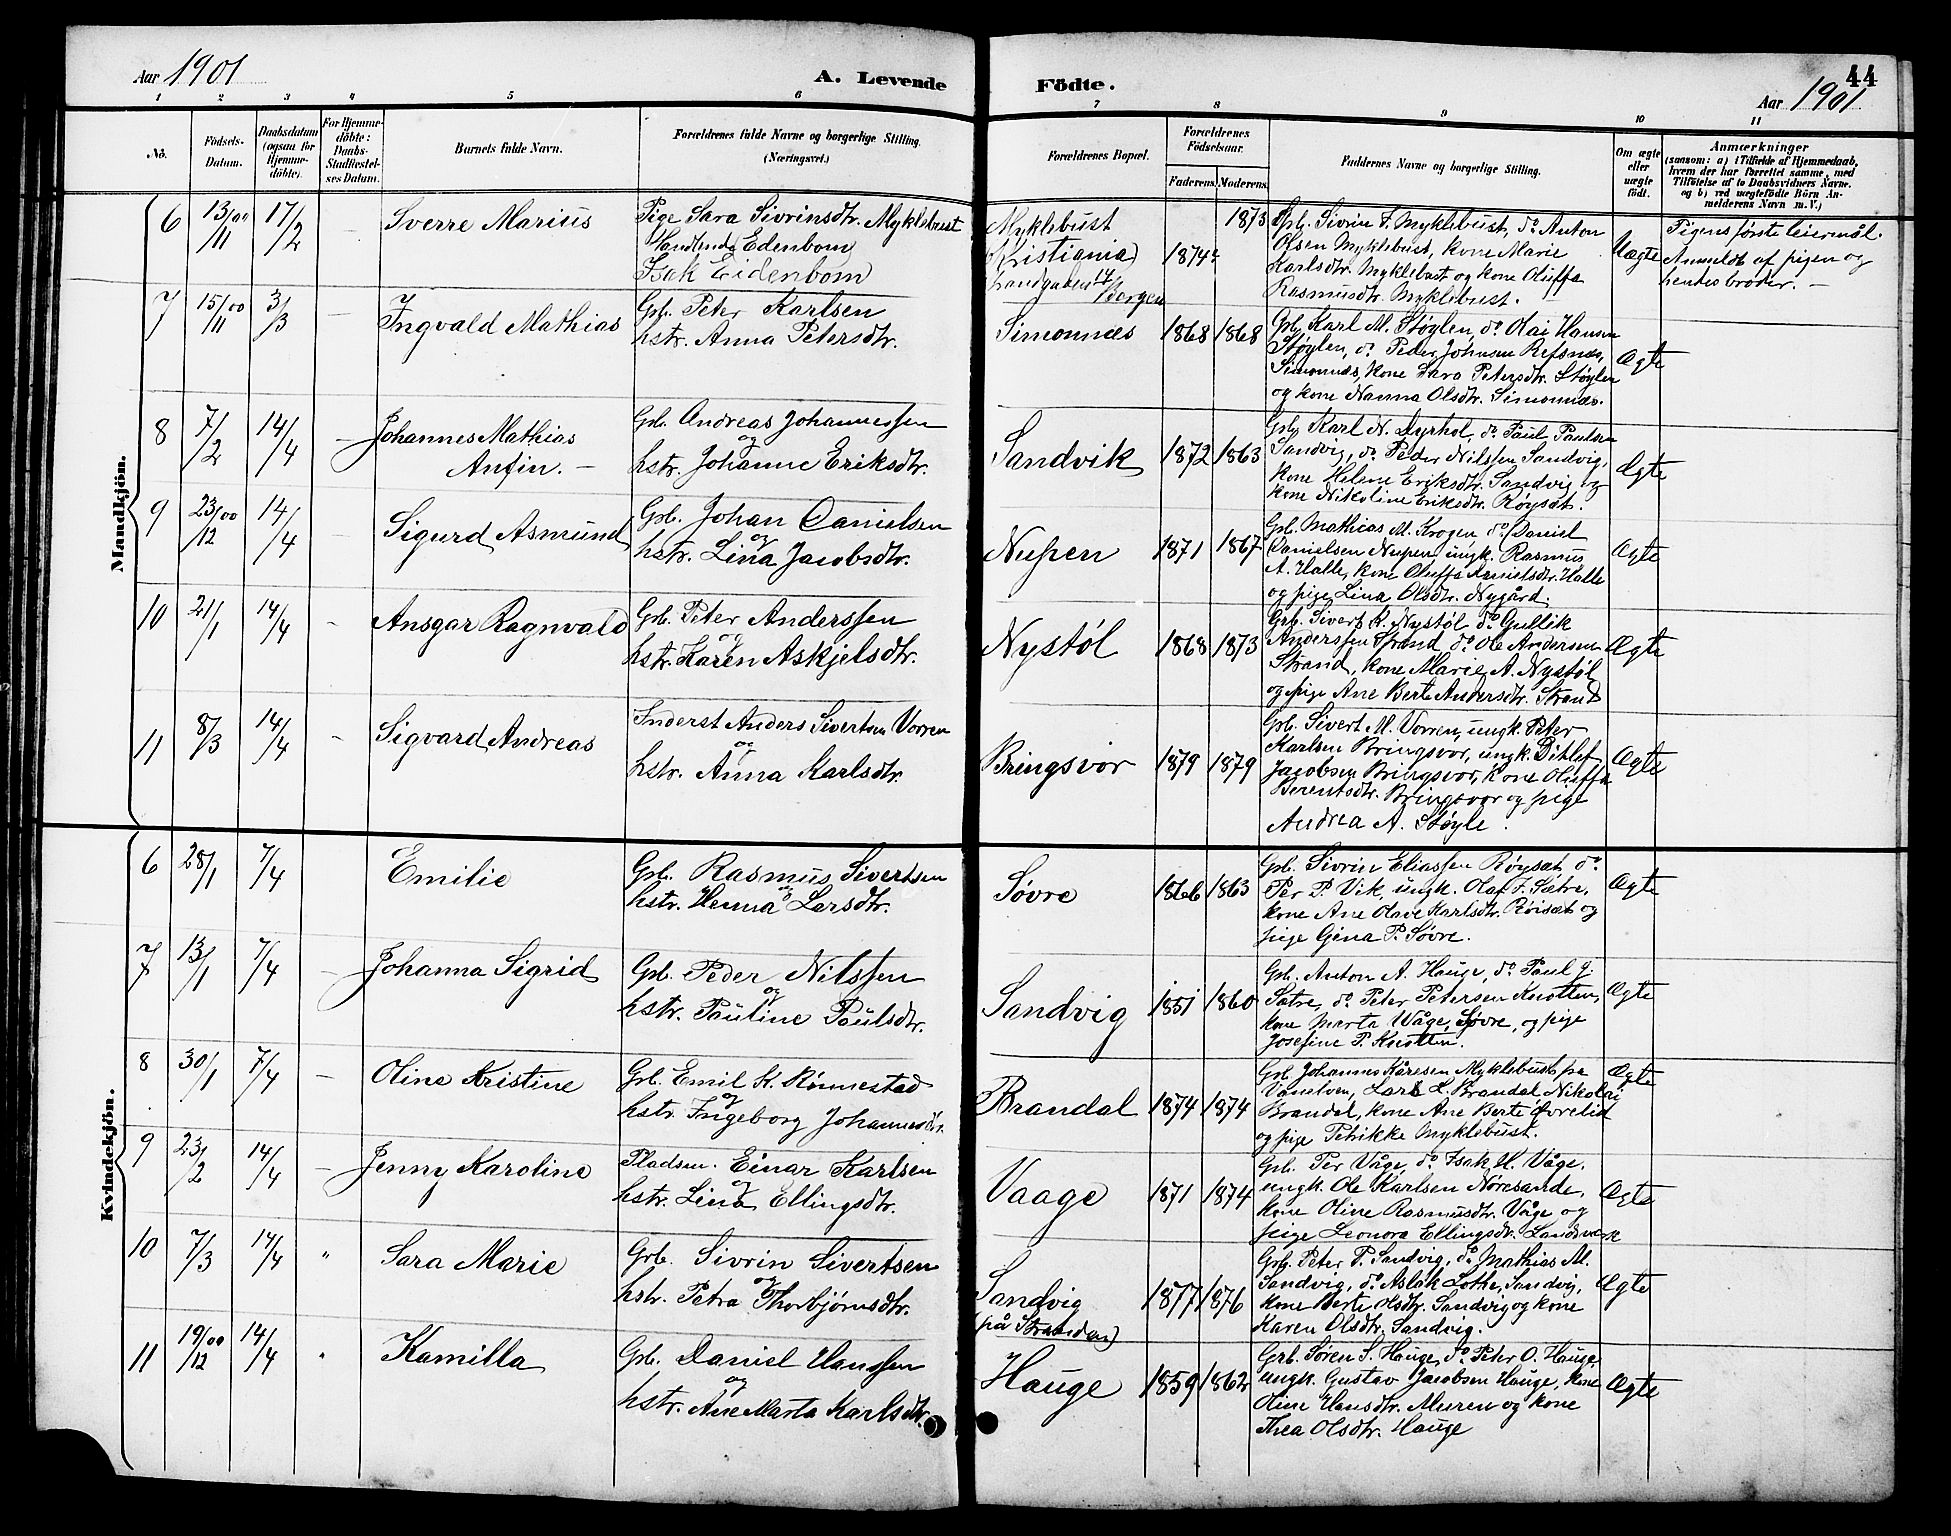 Aar 1901
A. Levende
Födte.
44
Aar 1901
1 2 3 4 5 6 7 8 9 10 11
No.
Födsels-
Datum.
Daabsdatum
(ogsaa for
Hjemme-
döbte).
For Hjemme-
döbte:
Daabs-
Stadfæstel-
ses Datum.
Barnets fulde Navn.
Forældrenes fulde Navne og borgerlige Stilling.
(Næringsvei.)
Forældrenes Bopæl.
Forældrenes
Födselsaar.
Faderens.
Moderens.
Faddernes Navne og borgerlige Stilling.
Om ægte
eller
uægte
födt.
Anmærkninger
(saasom: a) i Tilfælde af Hjemmedaab,
hvem der har forrettet samme, med
Tilföielse af to Daabsvidners Navne.
og b) ved uægtefödte Börn An-
melderens Navn m. V.)
Mandkjön.
6 13/11 00 17/2 Sverre Marius
Pige Sara Sivrinsdtr. Myklebust
Handlende Edenbom
Isak Eidenbom
Myklebust
(Kristiania)
Landgaden 14/Bergen
1874?
1873
Grb. Sivrin F. Myklebust, do Anton
Olsen Myklebust, kone Marie
Karlsdtr. Myklebust og kone Oluffa
Rasmusdtr. Myklebust.
Uægte
Pigens første leiermål.
Anmeldt af pigen og
hendes broder. —
7 15/11 00 3/3 — Ingvald Mathias
Grb. Peter Karlsen
hstr. Anna Petersdtr.
Simonnæs 1868 1868
Grb. Karl M. Støylen, do Olai Hansen
Støylen, do Peder Johnsen Refsnæs,
Simonnæs, kone Sara Petersdtr. Støylen
og kone Nanna Olsdtr. Simonnæs.
Ægte
8 7/2 14/4 — Johannes Mathias
Anfin. —
Grb. Andreas Johannessen
og
hstr. Johanne Eriksdtr.
Sandvik 1872 1863
Grb. Karl N. Dyrhol, do Paul Paulsen
Sandvig, do Peder Nilssen Sandvig,
kone Helene Eriksdtr. Sandvig og
kone Nikoline Eriksdtr. Røysæt.
Ægte
9 23/12 00 14/4 Sigurd Asmund
Grb. Johan Danielsen
og
hstr. Lina Jacobsdtr.
Nupen 1871 1867
Grb. Mathias M. Krogen, do Daniel
Danielsen Nupen, ungk. Rasmus
A. Halle, kone Oluffa Halle
og pige Lina Olsdtr. Nygård.
Ægte
10 21/1 14/4 - Ansgar Ragnvald
Grb. Peter Anderssen
og
hstr. Karen Askjelsdtr.
Nystøl 1868 1873
Grb. Sivert K. Nystøl do Gullik
Anderssen Strand, do Ole Andersen
Strand, kone Marie A. Nystøl
og pige Ane Berte Andersdtr. Strand
Ægte
11 8/3 14/4 - Sigvard Andreas
Inderst Anders Sivertsen Vorren
og
hstr. Anna Karlsdtr.
Bringsvor 1879 1879
Grb. Sivert M. Vorren, ungk. Peter
Karlsen Bringsvor, ungk. Ditlef
Jacobsen Bringsvor, kone Oluffa
Berentsdtr. Bringsvor og pige
Andrea A. Støyle.
Ægte
Kvindekjön.
6 28/1 7/4 Emilie
Grb. Rasmus Sivertsen
og
hstr. Henna Larsdtr.
Søvre 1866 1863
Grb. Sivrin Eliassen Røysæt, do
Per P. Vik, ungk. Olaf J. Sætre,
kone Ane Olave Karlsdtr. Røisæt og
pige Gina P. Søvre.
Ægte
7 13/1 7/4 - Johanna Sigrid
Grb. Peder Nilssen
og
hstr. Pauline Paulsdtr.
Sandvig 1851 1860
Grb. Anton A. Hauge, do Paul J.
Sætre, do Peter Petersen Knotten,
kone Marta Våge, Søvre, og pige
Josefine P. Knotten.
Ægte
8 30/1 7/4 — Oline Kristine
Grb. Emil K. Rønnestad
og
hstr. Ingeborg Johannesdtr.
Brandal 1874 1874
Grb. Johannes Kåresen Myklebust fra
Vanelven, Lars L. Brandal, Nikolai
Brandal, kone Ane Berte Øvrelid
og pige Petrikke Myklebust.
Ægte
9 23/2 14/4 — Jenny Karoline
Pladsm. Einar Karlsen
og
hstr. Lina Ellingsdtr.
Vaage 1871 1874
Grb. Per Våge, do Isak H. Våge,
ungk. Ole Karlsen Nøresande,
kone Oline Rasmusdtr. Våge og
pige Leonora Ellingsdtr. Landsværk
Ægte
10 7/3 14/4 " Sara Marie
Grb. Sivrin Sivertsen
og
hstr. Petra Thorbjørnsdtr.
Sandvig
(på Stranden)
1877 1876
Grb. Peter P. Sandvig, do Mathias M.
Sandvig, do Aslak Lothe, Sandvig,
kone Berte Olsdtr. Sandvig og kone
Karen Olsdtr. Sandvig.
Ægte
11 19/12 00 14/4 " Kamilla
Grb. Daniel Hanssen
og
hstr. Ane Marta Karlsdtr.
Hauge 1859 1862
Grb. Søren S. Hauge, do Peter O. Hauge,
ungk. Gustav Jacobsen Hauge, kone
Oline Hansdtr. Muren og kone
Thea Olsdtr. Hauge
Ægte